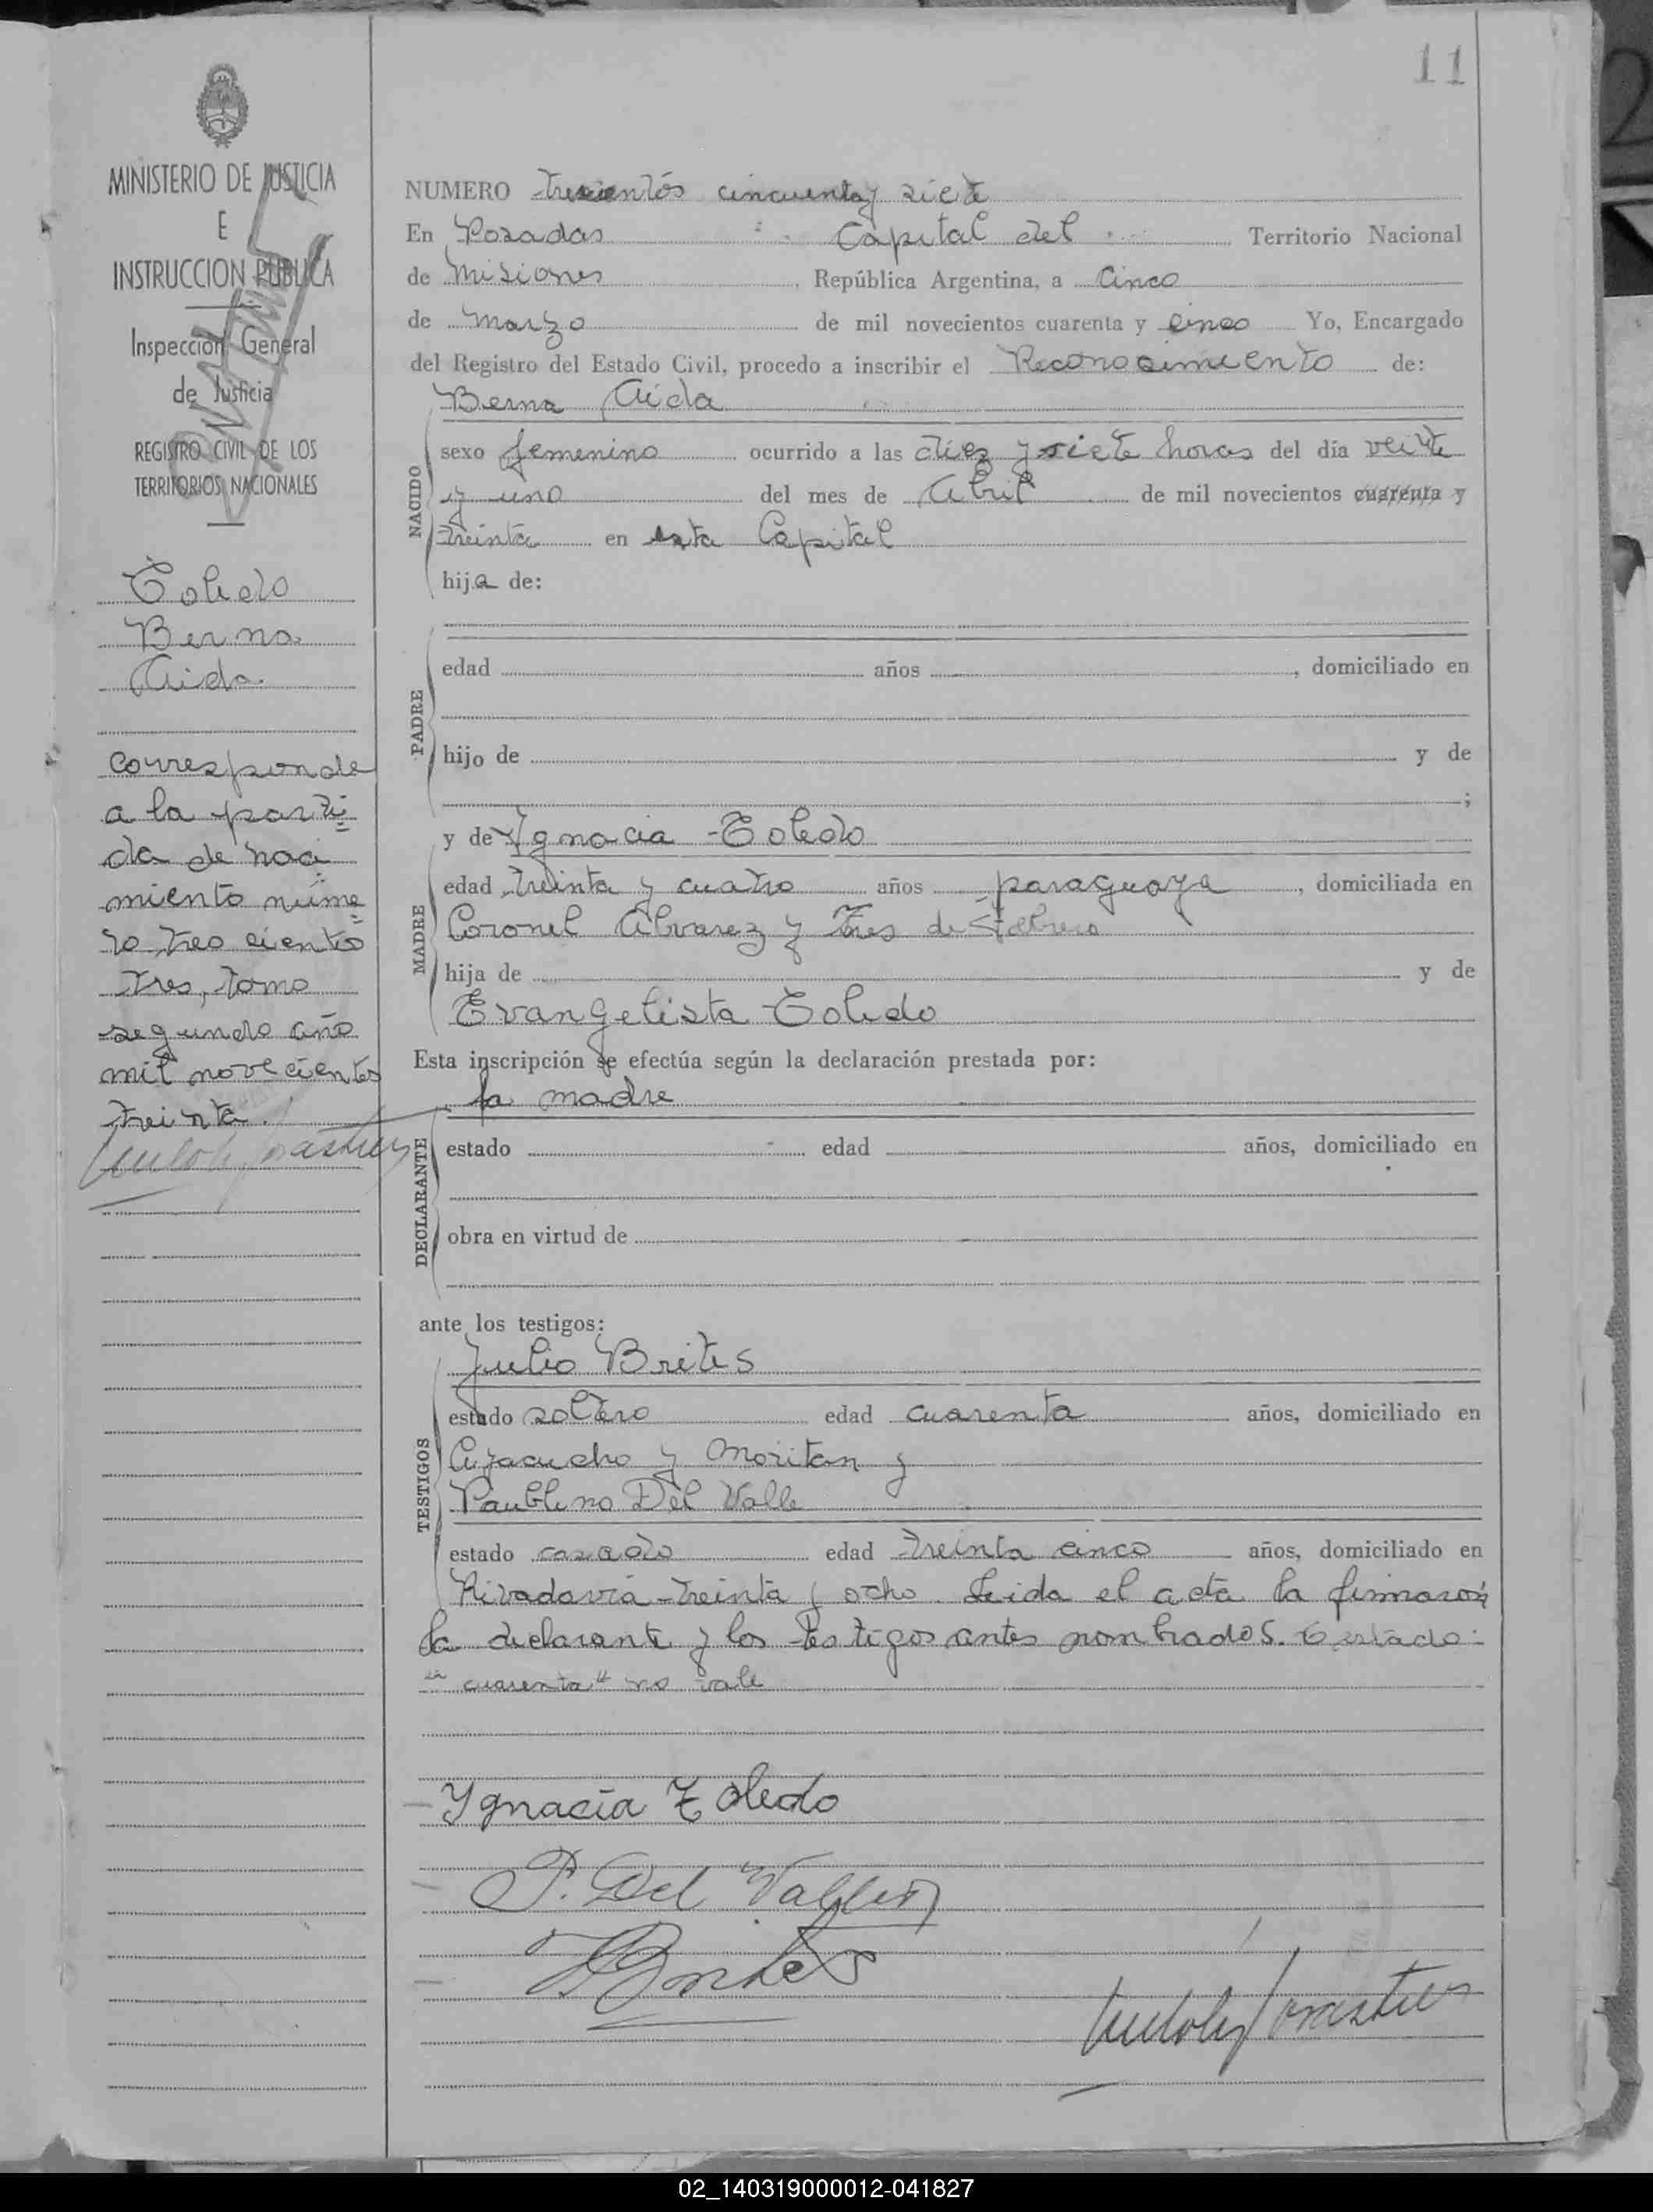 11
MINISTERIO DE JUSTICIA
E
INSTRUCCION PUBLICA
Inspección General
de Justicia
REGISTRO CIVIL DE LOS
TERRITORIOS NACIONALES
Toledo
Berna
Aida
corresponde
a la parti
da de naci
miento núme
ro trescientos
tres, tomo
segundo año
mil novecientos
treinta.
NUMERO trescientos cincuenta y siete
En Posadas Capital del Territorio Nacional
de Misiones, República Argentina, a cinco
de Marzo de mil novecientos cuarenta y cinco Yo, Encargado
del Registro del Estado Civil, procedo a inscribir el Reconosimiento de:
Berna Aida
NACIDO
sexo femenino ocurrido a las diez y siete horas del día veinte
y uno del mes de Abril de mil novecientos cuarenta y
treinta en esta Capital
hija de:
PADRE
edad años , domiciliado en
hijo de y de
;
y de Ygnacia Toledo
MADRE
edad treinta y cuatro años paraguaya, domiciliada en
Coronel Alvarez y Tres de Febrero
hija de y de
Evangelista Toledo
Esta inscripción se efectúa según la declaración prestada por:
la madre
DECLARANTE
estado edad años, domiciliado en
obra en virtud de
ante los testigos:
Julio Brites
TESTIGOS
estado soltero edad cuarenta años, domiciliado en
Ayacucho y Moritan y
Paublino Del Valle
estado casado edad treinta cinco años, domiciliado en
Rivadavia treinta y ocho. Leida el acta la firmaron
la declarante y los testigos antes nombrados. Testado:
"cuarenta" no vale
Ygnacia Toledo
P. Del Valle
JBrites
02_140319000012-041827